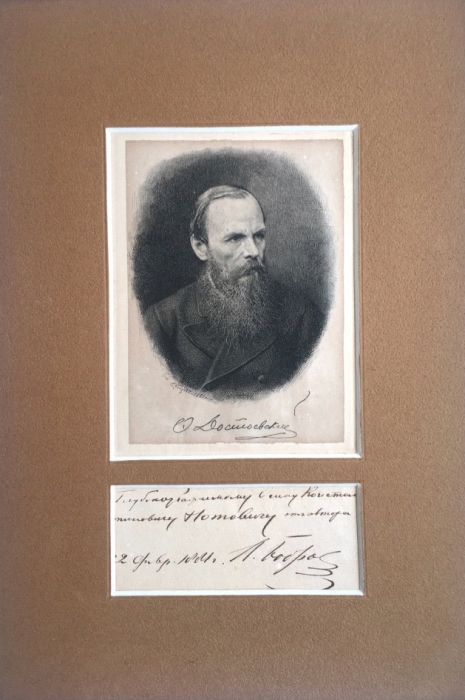 Ѳ Достоевский
Глубокоуважаемому Осипу Констан
тиновичу Нотовичу от автора
2 Февр. 1881 г. Л. Бобров